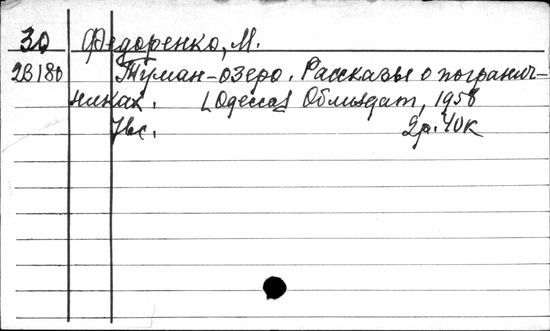 30 Федоренко, М.
2В180 Туман-озеро. Рассказы о погранич-
никах. [Одесса] Облиздат, 1958
74с. 2р. 40к